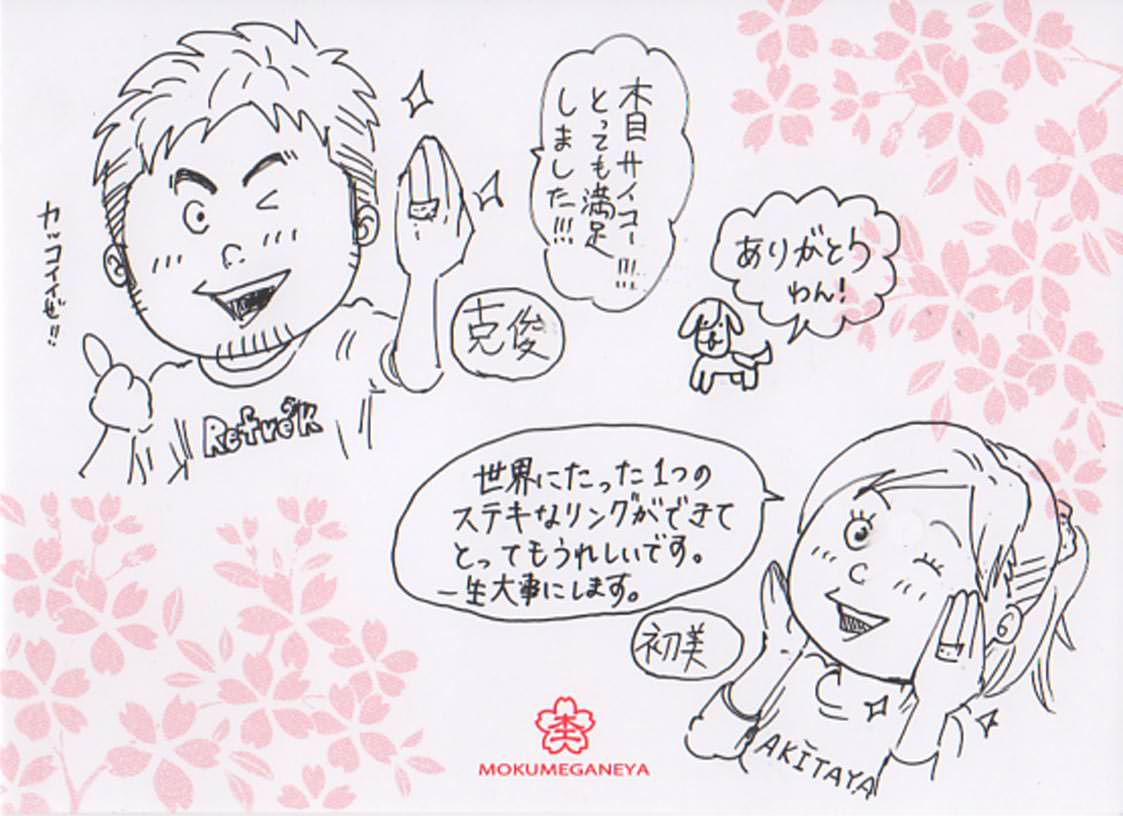 木目サイコー!!!
とっても満足
しました!!!
カッコイイぜ!!
克俊
ありがとう
わん!
世界にたった1つの
ステキなリングができて
とってもうれしいです。
一生大事にします。
初美
AKITAYA
MOKUMEGANEYA